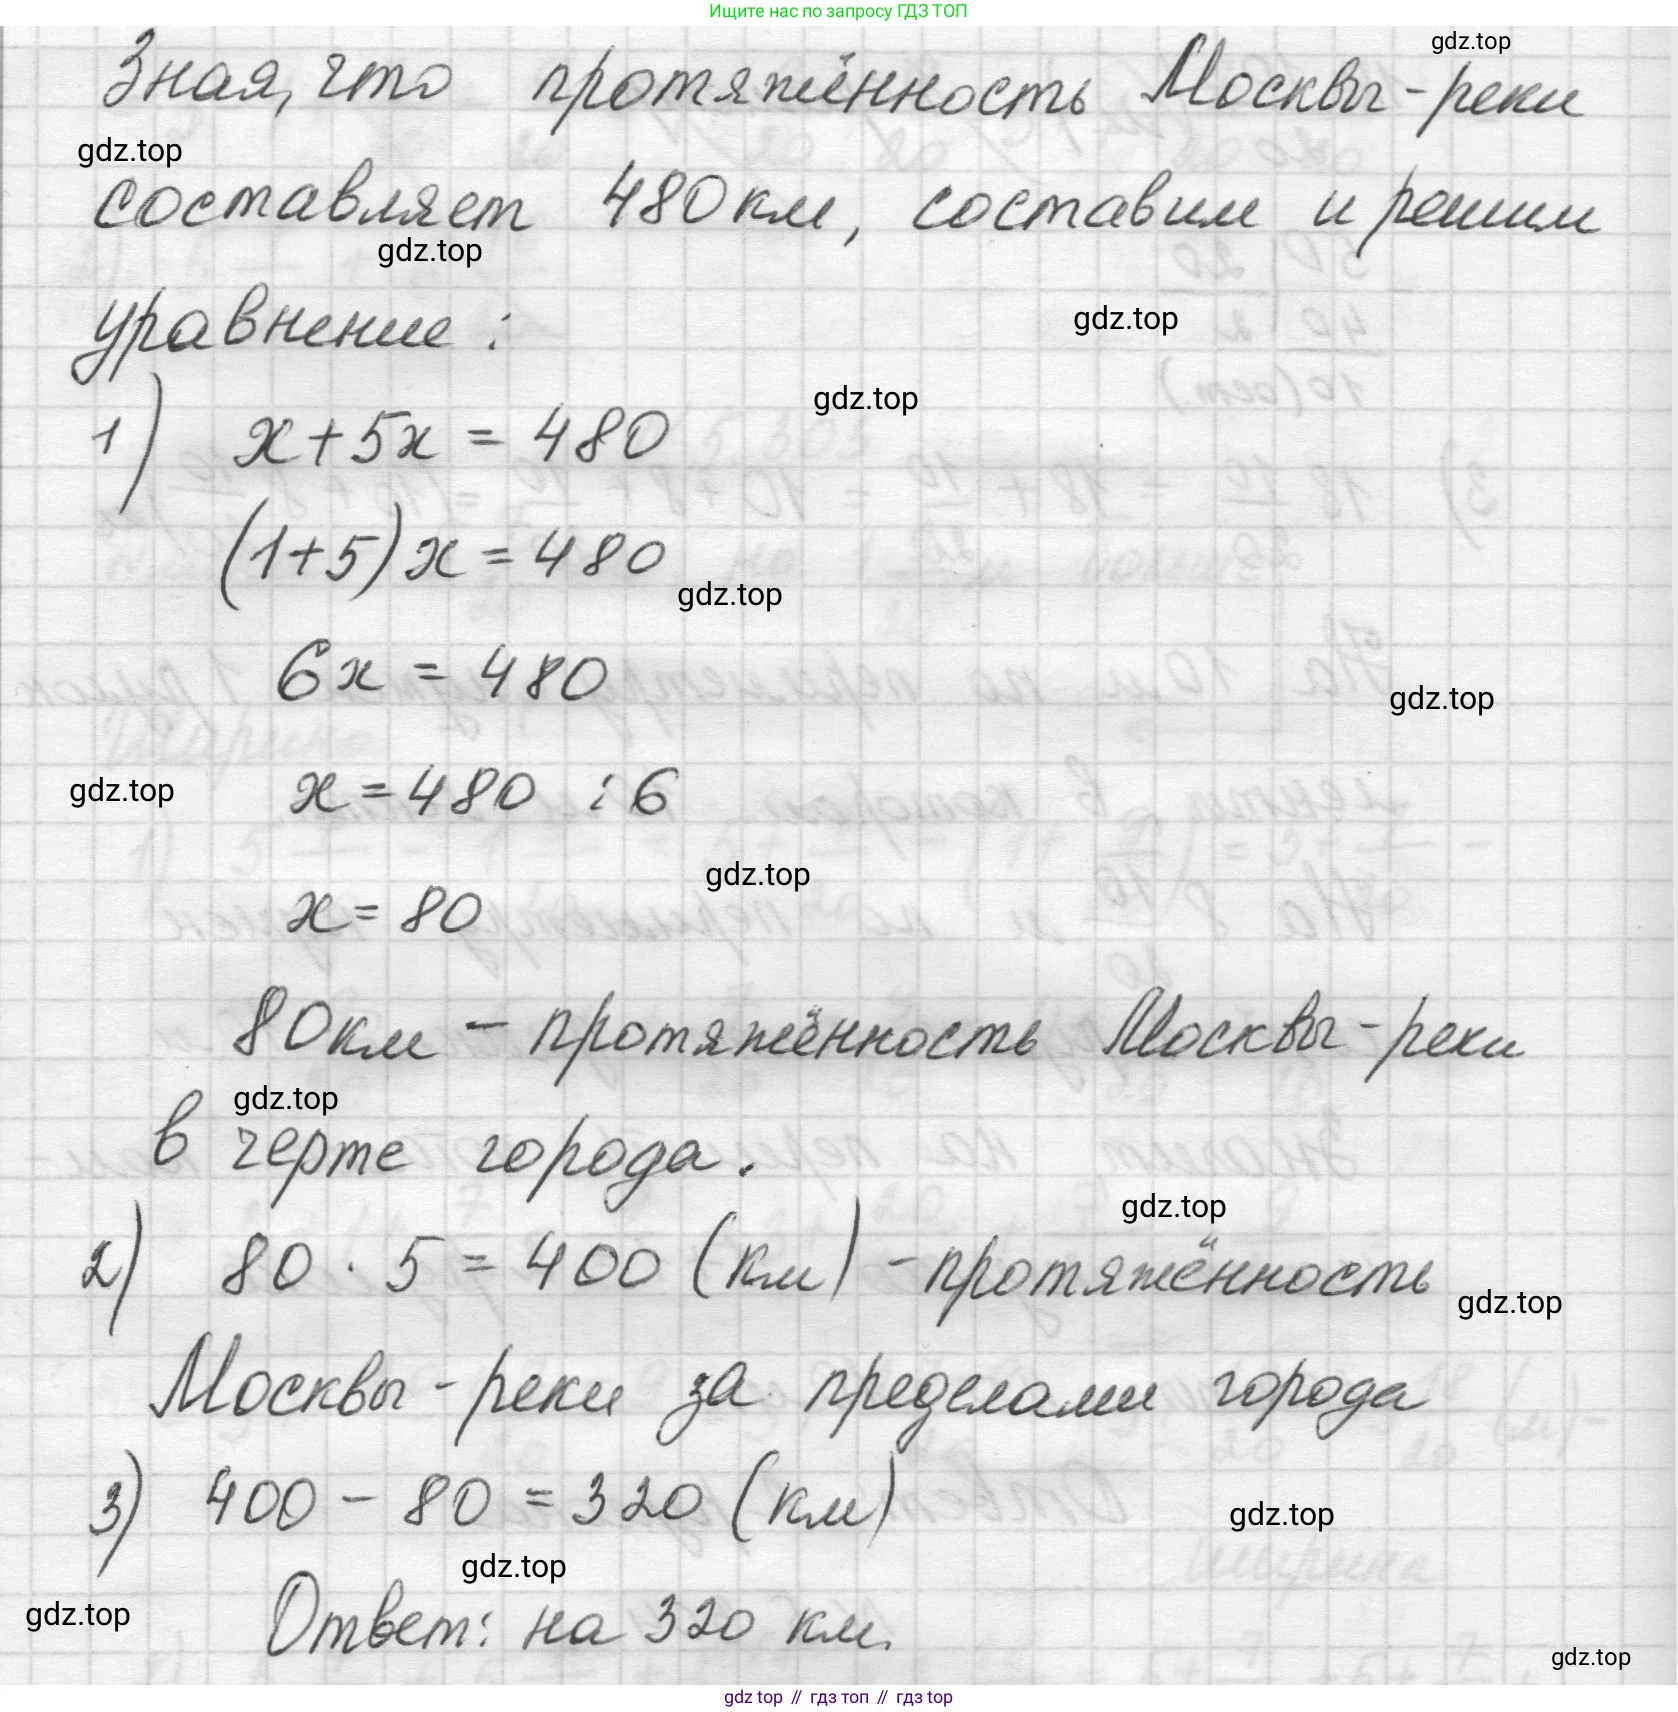 Ищите нас по запросу ГДЗ ТОП
gdz.top
Зная, что протяжённость Москвы-реки
gdz.top
составляет 480 км, составим и решим
gdz.top
уравнение:
gdz.top
gdz.top
1) x+5x = 480
(1+5)x = 480
gdz.top
6x = 480
gdz.top
gdz.top
x = 480 : 6
gdz.top
x = 80
80 км - протяжённость Москвы-реки
gdz.top
в черте города.
gdz.top
2) 80 · 5 = 400 (км) - протяжённость
gdz.top
Москвы-реки за пределами города
3) 400 - 80 = 320 (км)
gdz.top
gdz.top
gdz.top
Ответ: на 320 км.
gdz.top
gdz top // гдз топ // гдз top